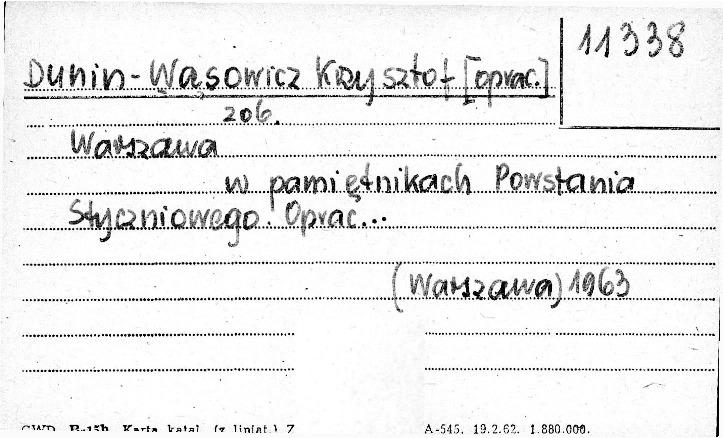 11338
Dunin-Wąsowicz Krzysztof [oprac.]
206.
Warszawa
w pamiętnikach Powstania
Styczniowego. Oprac...
(Warszawa) 1963
GWD B-15b. Karta katal. (z liniat.) Z
A-545. 19.2.62. 1.880.000.